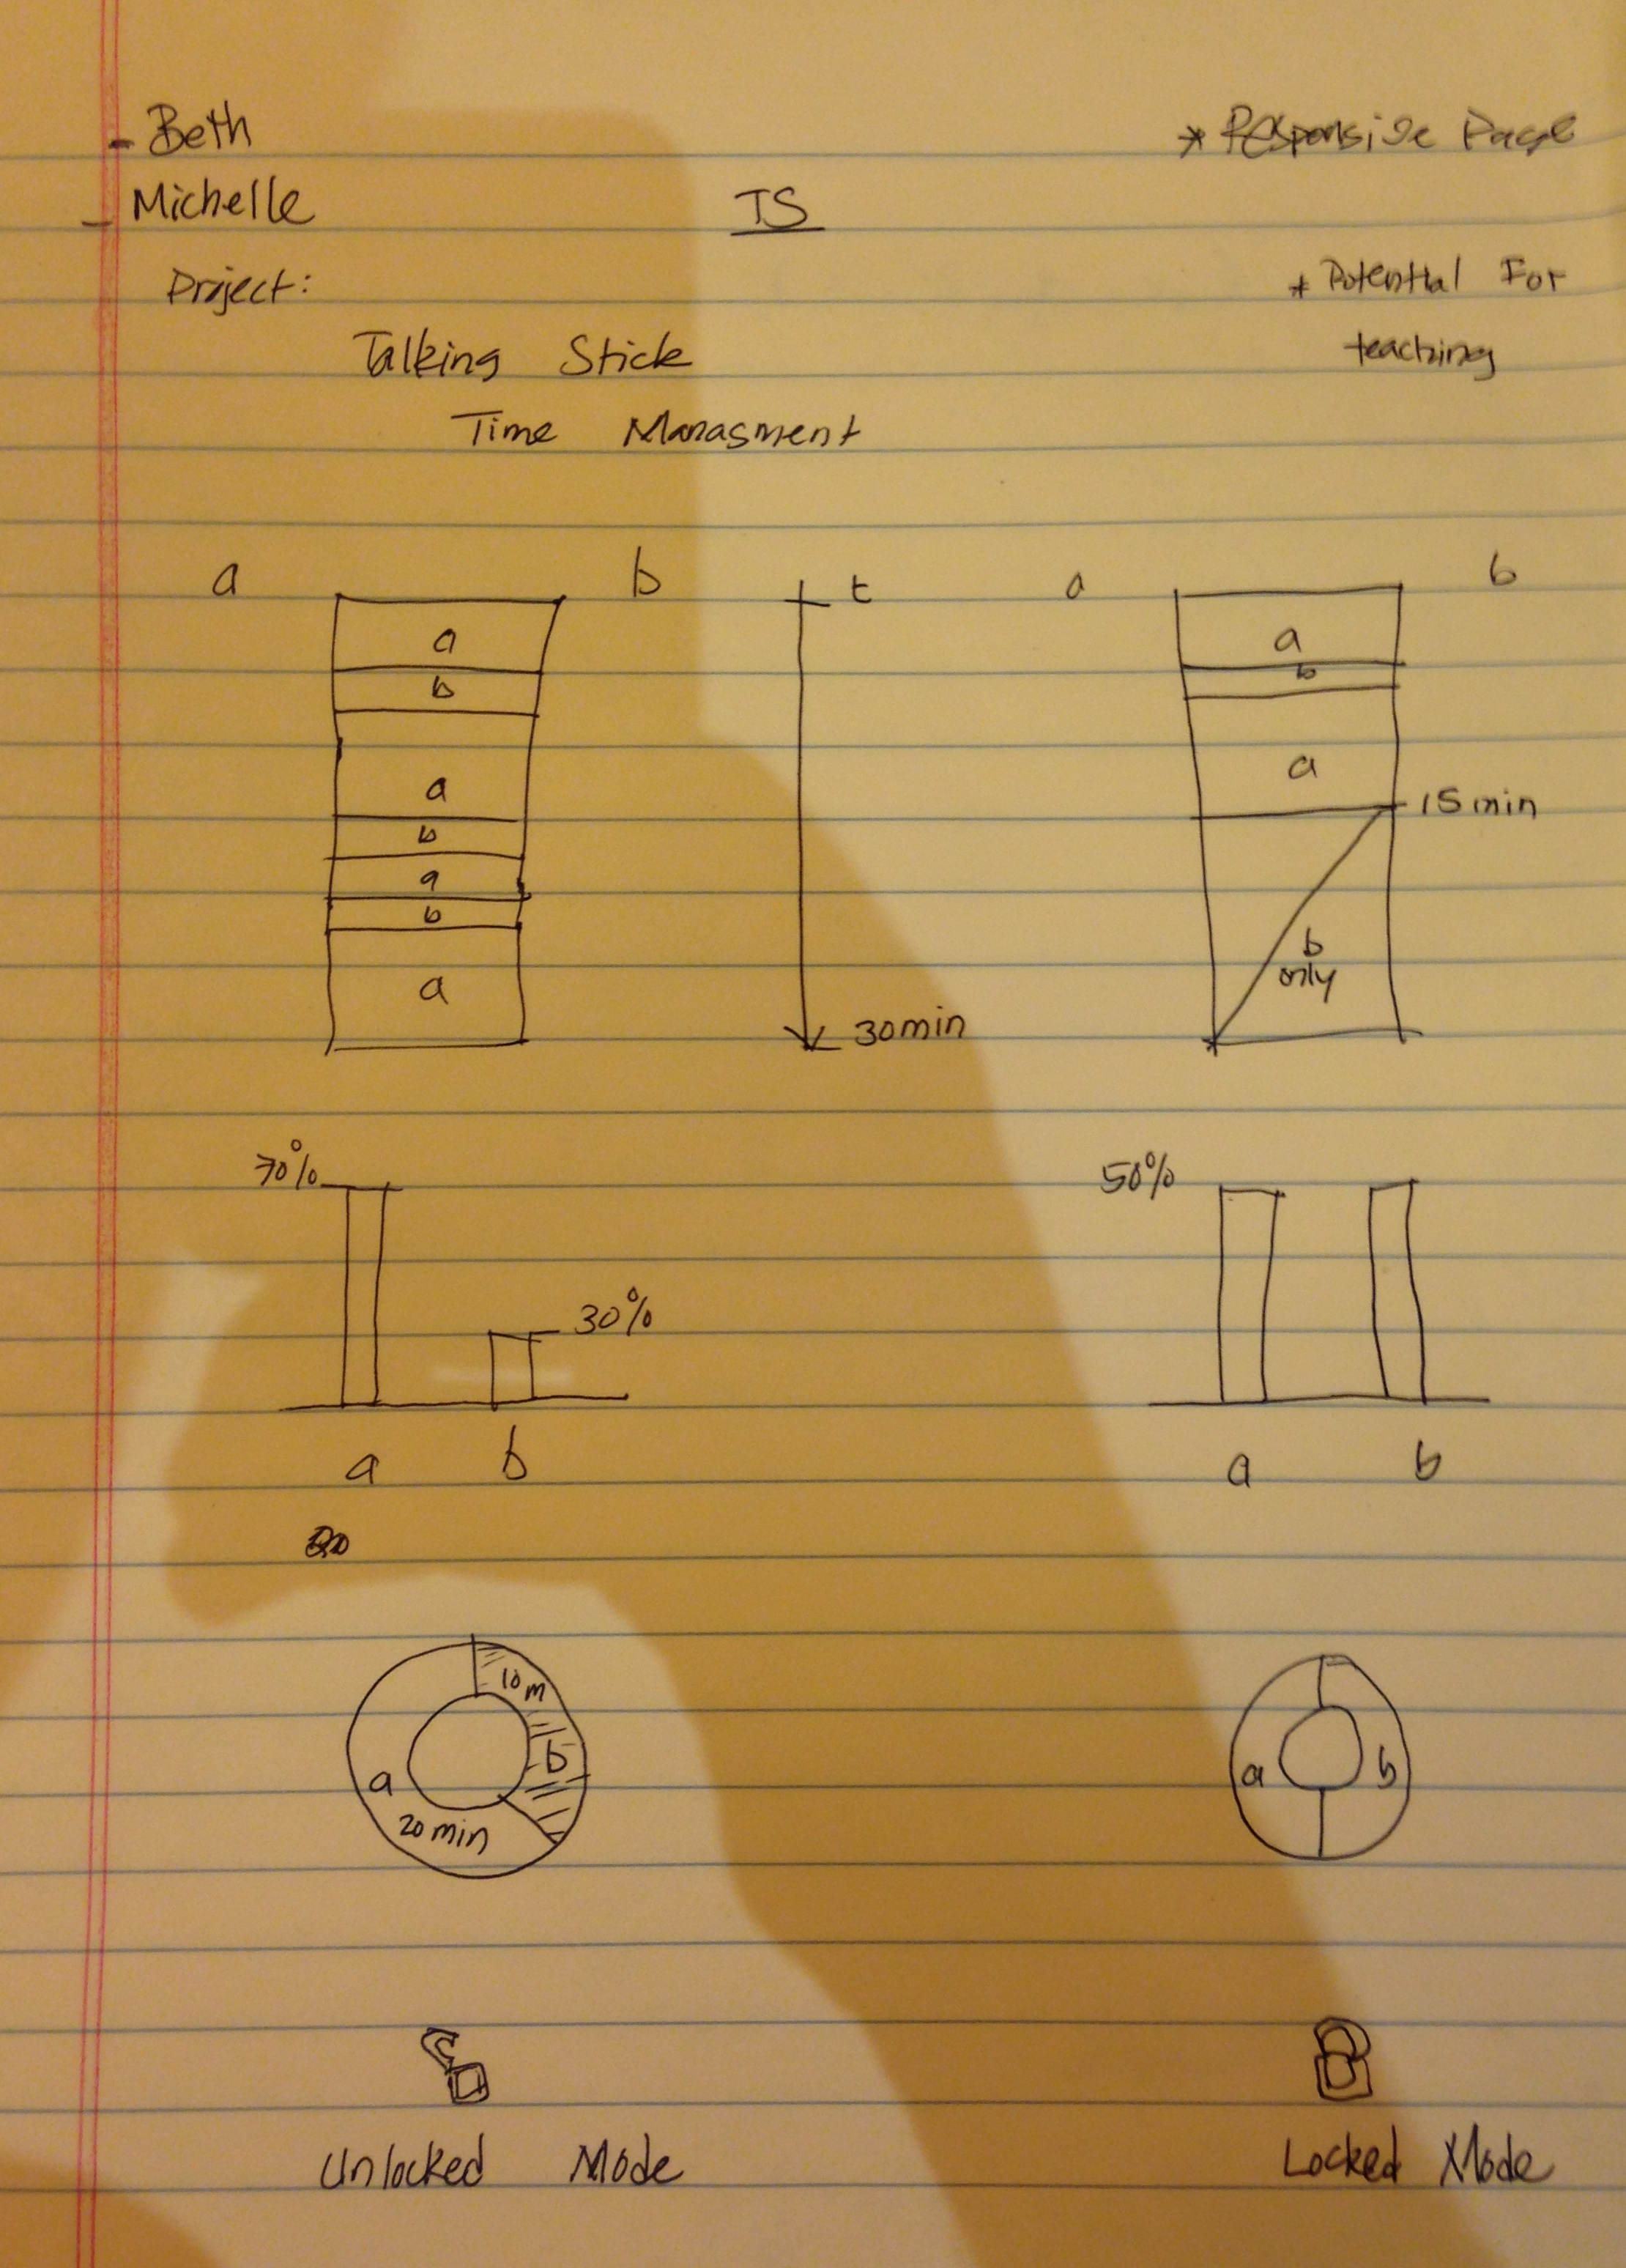 - Beth
* Responsive Page
- Michelle
TS
Project:
* Potential For
teaching
Talking Stick
Time Managment
a
b
t
a
b
a
b
a
b
a
b
a
30min
a
b
a
15min
b
only
70%
30%
a
b
50%
a
b
10m
b
a
20min
a
b
Unlocked Mode
Locked Mode